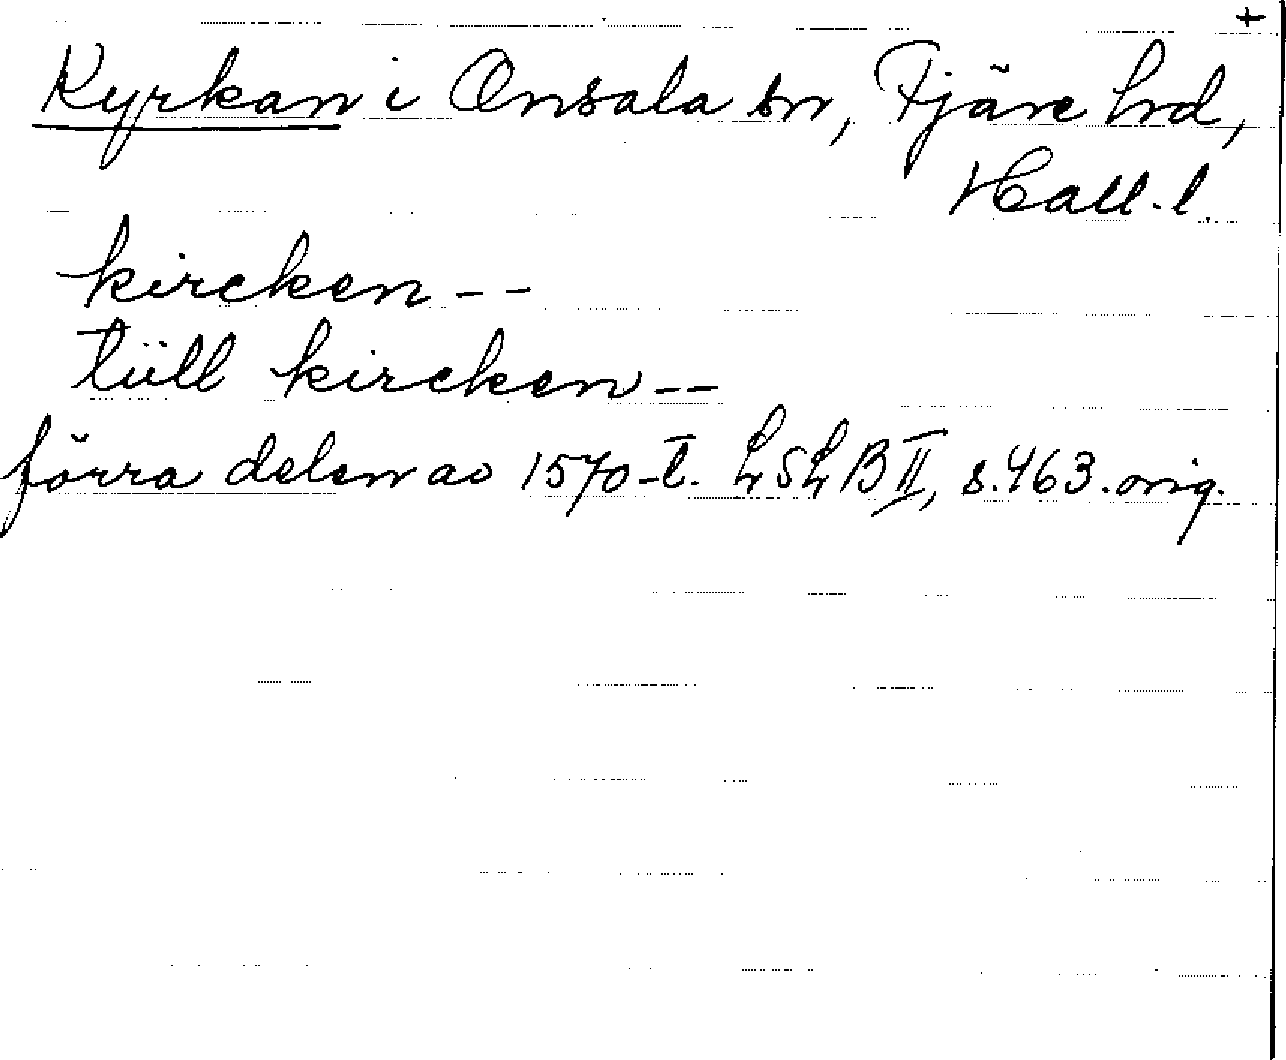 +
Kyrkan i Onsala sn, Fjäre hrd,
Hall. l.
kircken --
tüll kircken --
förra delen av 1570-t. LSLB II, s. 463. orig.